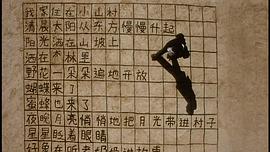 我家住在小山村
清晨太阳从东方慢慢升起
阳光洒在山坡上
洒在森林里
野花一朵朵遍地开放
蝴蝶来了
蜜蜂也来了
夜晚月亮悄悄地把月光带进村子
星星眨着眼睛
好象在听老奶奶讲故事